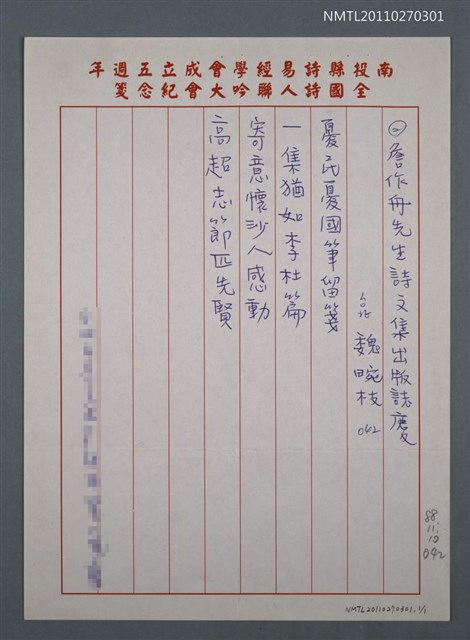 NMTL20110270301
南投縣詩易經學會成立五週年
全國詩人聯吟大會紀念箋
㊁詹作舟先生詩文集出版誌慶
魏畹枝 042
憂民憂國筆留箋
一集猶如李杜篇
寄意懷沙人感動
高超志節匹先賢
88.
11.
10
042
NMTL20110270301,1/1